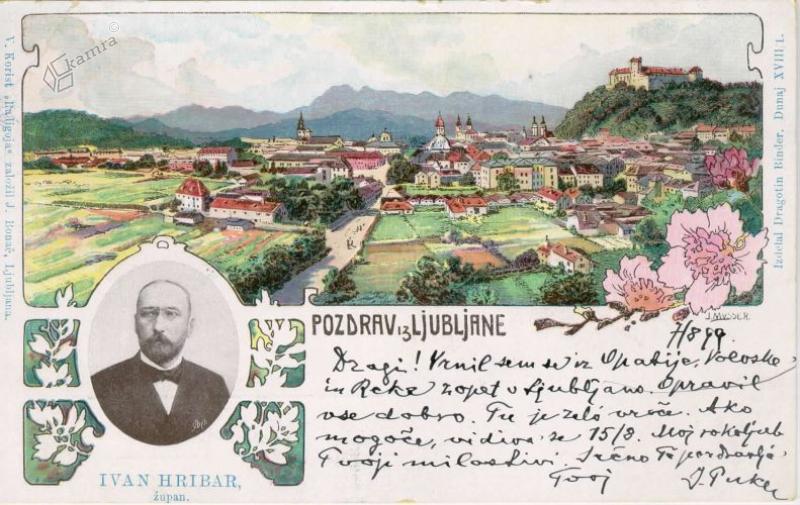 kamra ©
V. Korist „Radogoja“ založil J. Bonač, Ljubljana.
Izdelal Dragotin Binder, Dunaj XVIII/1.
J. MUSSER.
POZDRAV iz LJUBLJANE
7/8 99
Dragi! Vrnil sem se iz Opatije, Voloske
in Reke zopet v Ljubljano. Opravil
vse dobro. Tu je zelo vroče. Ako
mogoče, vidiva se 15/8. Moj rokoljub
Tvoji milostivi. Srčno Te pozdravlja
Tvoj
IVAN HRIBAR,
župan.